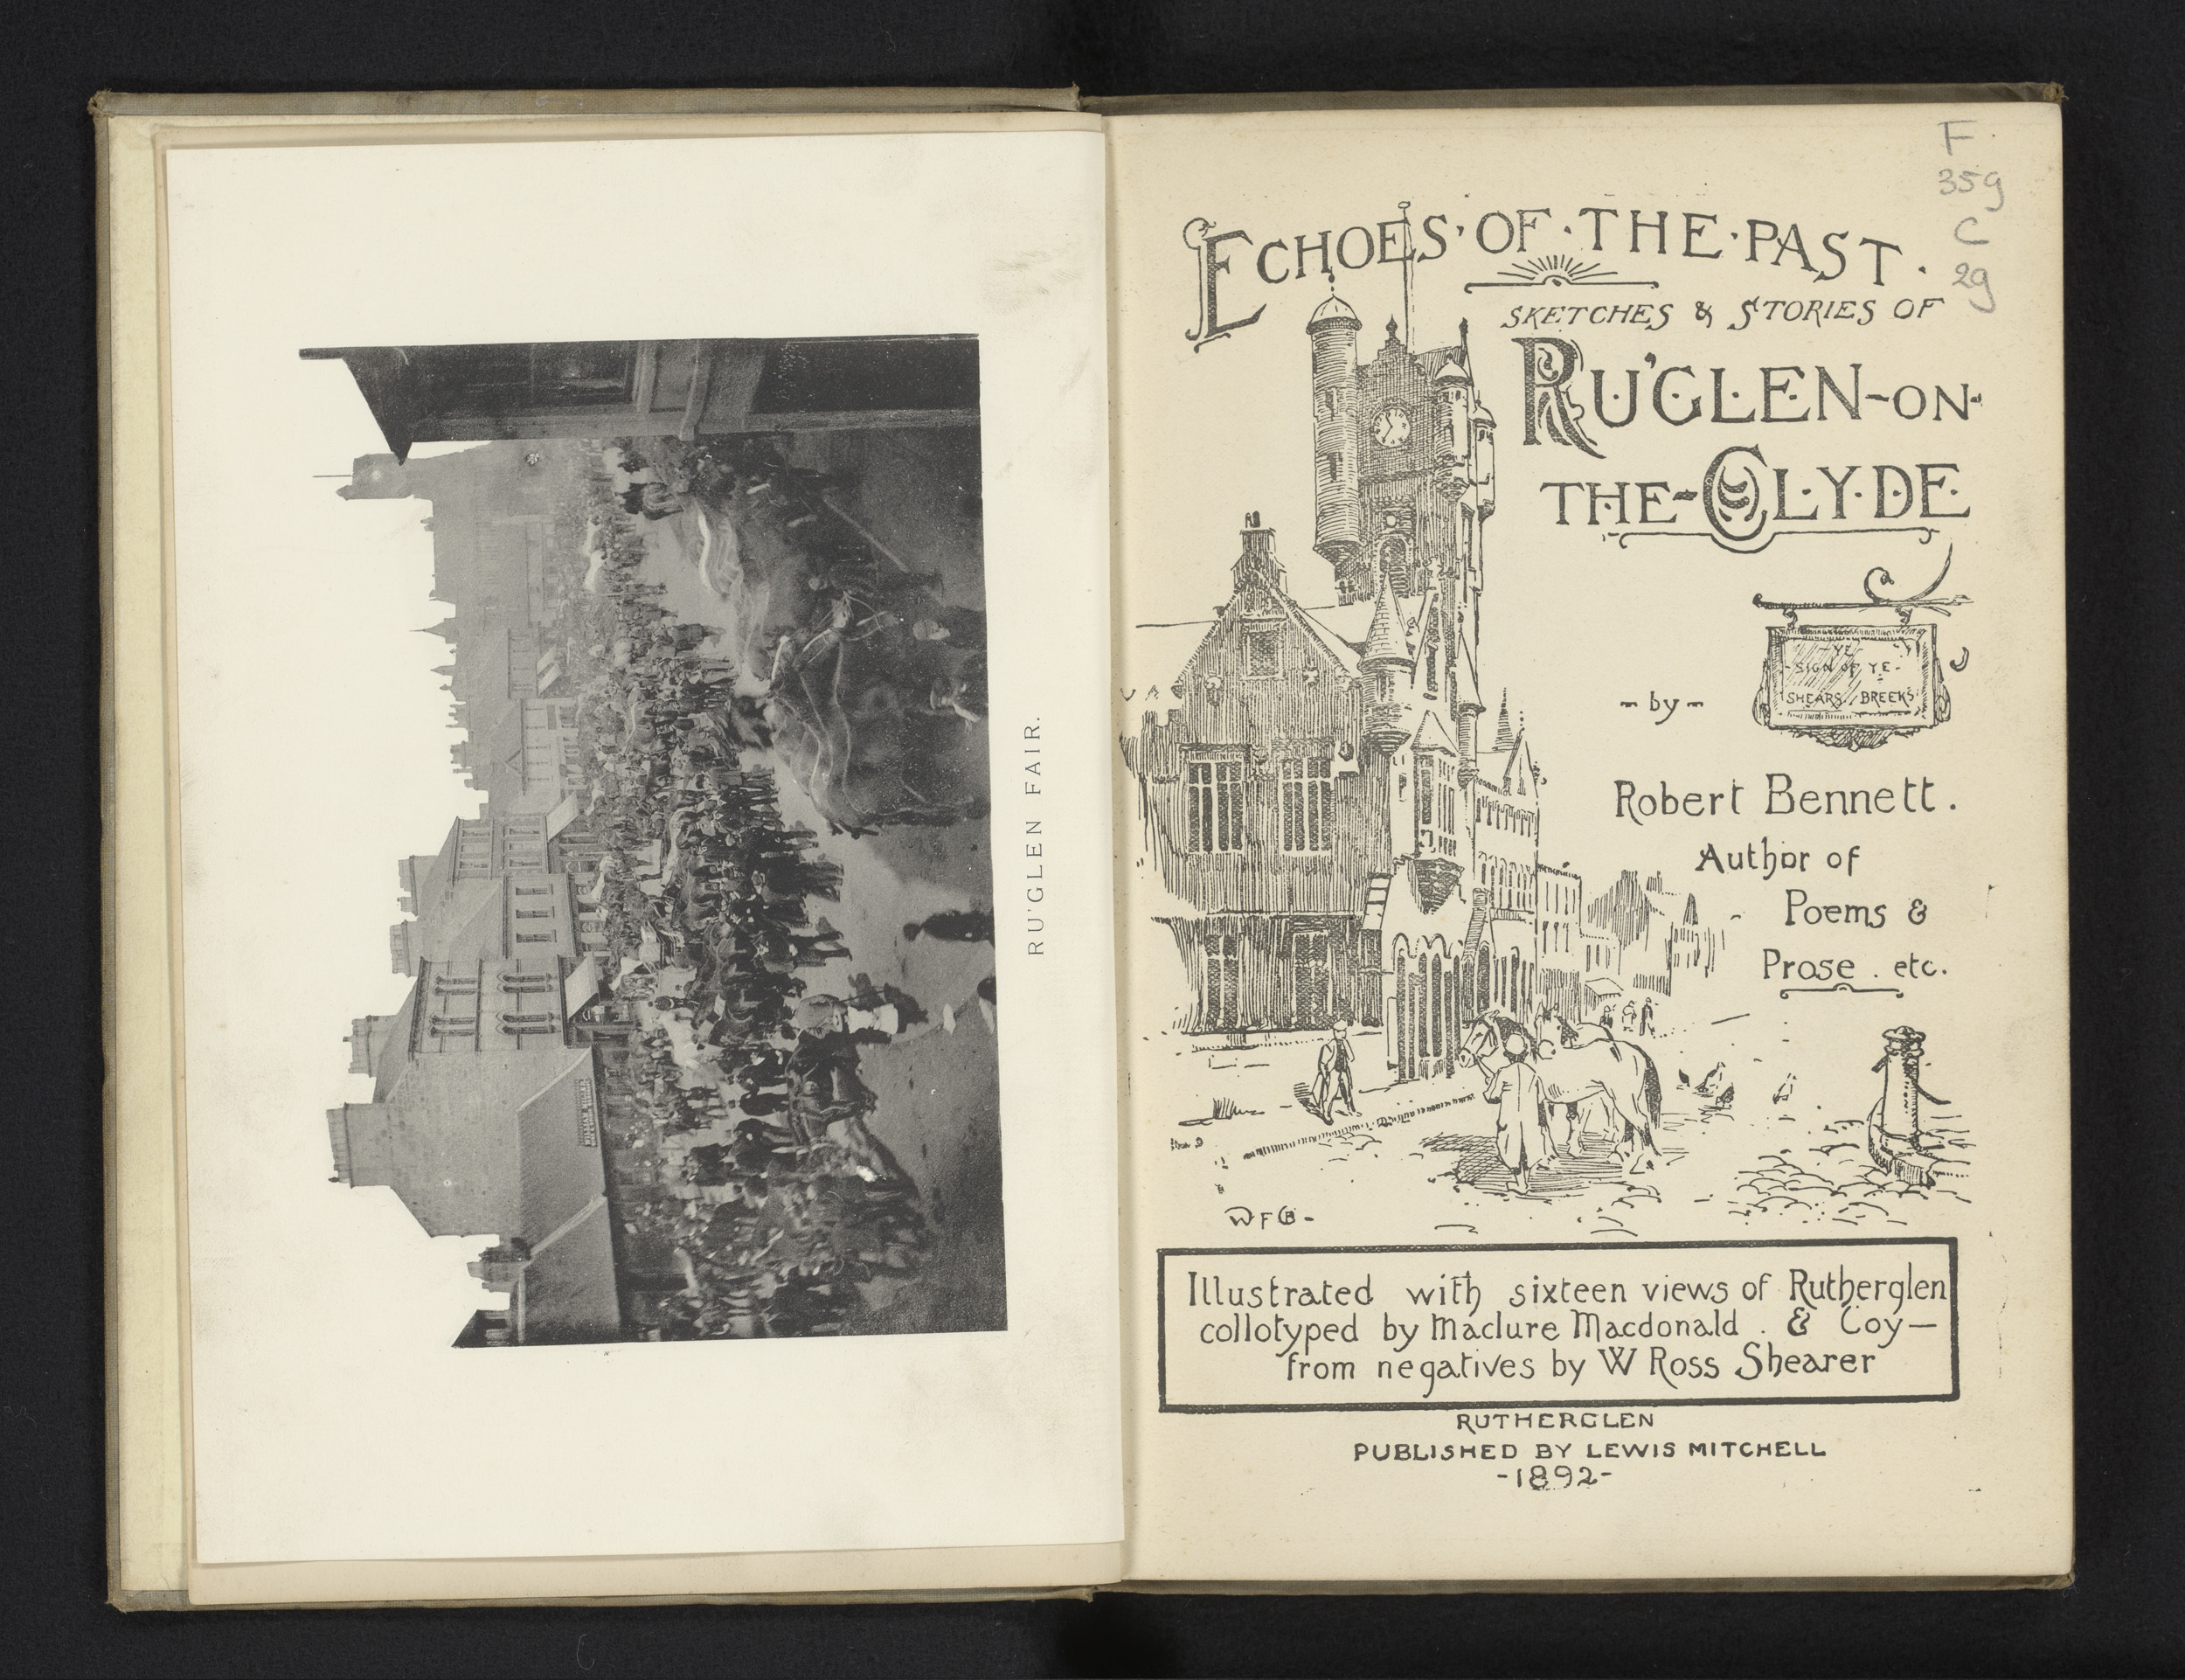 RU'GLEN FAIR.
F
35g
C
29
ECHOES·OF·THE·PAST.
SKETCHES & STORIES OF
RU'GLEN-ON-
THE-CLYDE
YE
SIGN OF YE
SHEARS / BREEKS
- by -
Robert Bennett.
Author of
Poems &
Prose . etc.
WFB-
Illustrated with sixteen views of Rutherglen
collotyped by Maclure Macdonald . & Coy—
from negatives by W Ross Shearer
RUTHERGLEN
PUBLISHED BY LEWIS MITCHELL
-1892-